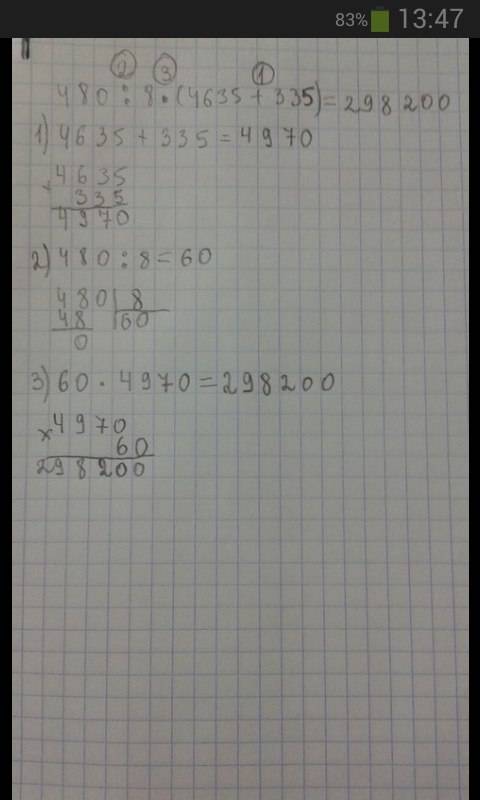 83% 13:47
② ③ ①
480 : 8 • (4635 + 335) = 298 200
1) 4635 + 335 = 4970
4635
+ 335
4970
2) 480 : 8 = 60
480 | 8
48 | 60
0
3) 60 · 4970 = 298200
× 4970
60
298200